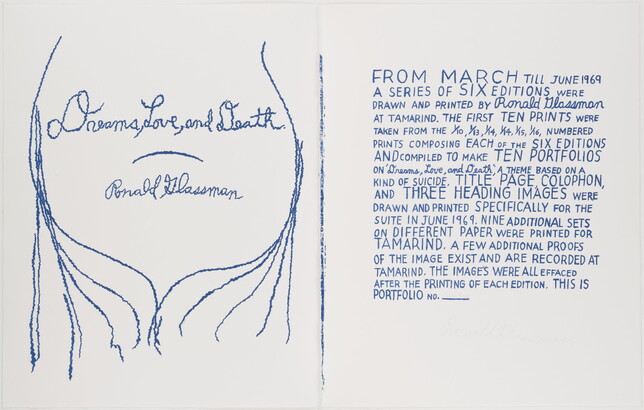 Dreams, Love, and Death.
Ronald Glassman
FROM MARCH TILL JUNE 1969
A SERIES OF SIX EDITIONS WERE
DRAWN AND PRINTED BY Ronald Glassman
AT TAMARIND. THE FIRST TEN PRINTS WERE
TAKEN FROM THE 1/10, 1/3, 1/4, 1/4, 1/5, 1/6, NUMBERED
PRINTS COMPOSING EACH OF THE SIX EDITIONS
AND COMPILED TO MAKE TEN PORTFOLIOS
ON "Dreams, Love, and Death", A THEME BASED ON A
KIND OF SUICIDE. TITLE PAGE, COLOPHON,
AND THREE HEADING IMAGES WERE
DRAWN AND PRINTED SPECIFICALLY FOR THE
SUITE IN JUNE 1969. NINE ADDITIONAL SETS
ON DIFFERENT PAPER WERE PRINTED FOR
TAMARIND. A FEW ADDITIONAL PROOFS
OF THE IMAGE EXIST AND ARE RECORDED AT
TAMARIND. THE IMAGE'S WERE ALL EFFACED
AFTER THE PRINTING OF EACH EDITION. THIS IS
PORTFOLIO NO.